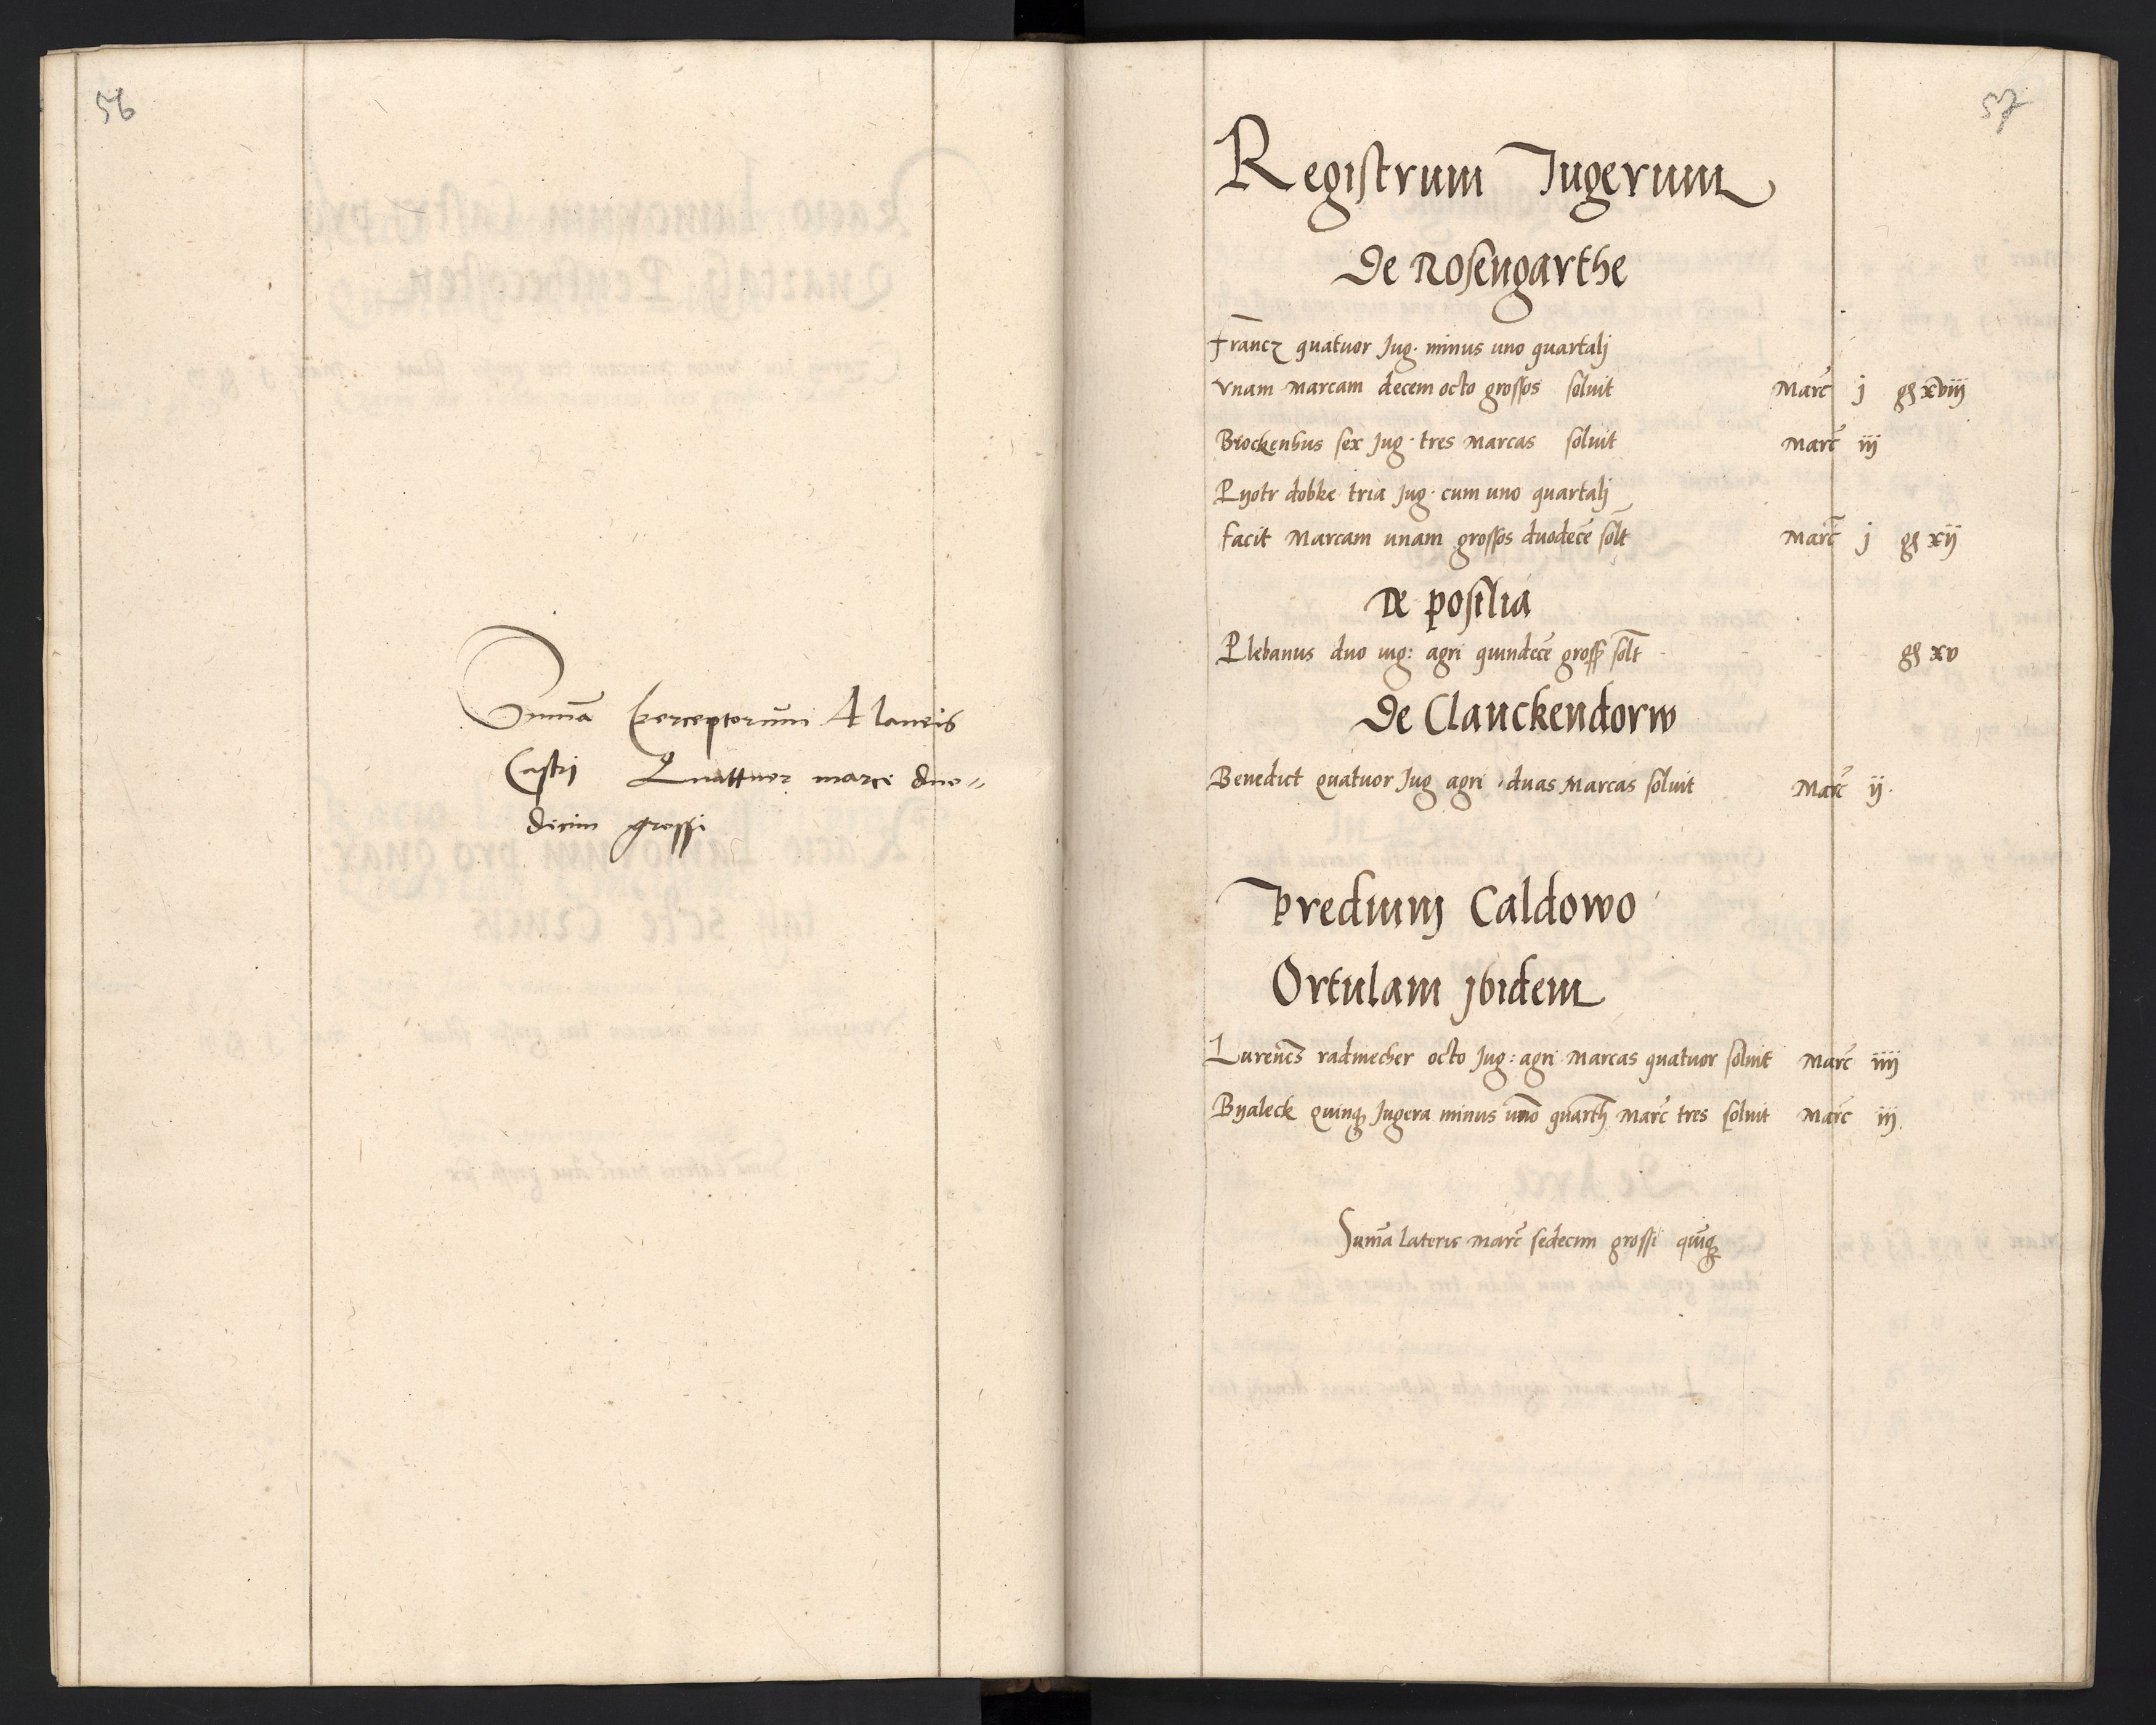 56
Suma perceptorum A laneis
Castri Quattuor marce duo=
decim grossi
57
Registrum Jugerum
De Rosengarthe
Francz quatuor Jug. minus uno quartalj
vnam marcam decem octo grossos soluit Marc j gs xviij
Brockenhus sex Jug. tres marcas soluit Marc iij
Pyotr dobke tria Jug. cum uno quartalj
facit Marcam unam grossos duodece solt Marc j gs xij
De posilia
Plebanus duo iug: agri quindece gross solt gs xv
De Clanckendorw
Benedict quatuor Jug agri duas Marcas soluit Marc ij.
Predium Caldowo
Ortulam jbidem
Lurencs radmecher octo Jug: agri Marcas quatuor soluit Marc iiij
Byaleck quinq Jugera minus uno quarth Marc tres soluit Marc iij.
Suma lateris marc sedecim grossi quiq